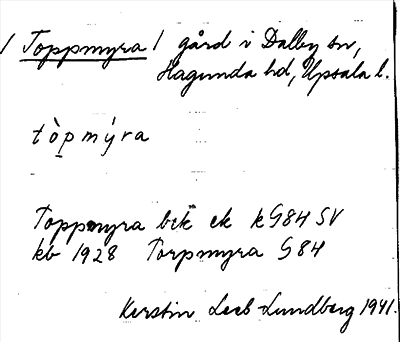 / Toppmyra / gård i Dalby sn,
Hagunda hd, Upsala l.
tòpmýra
Toppmyra bek ek kG84 SV
kb 1928 Torpmyra G84
Kerstin Leeb-Lundberg 1941.